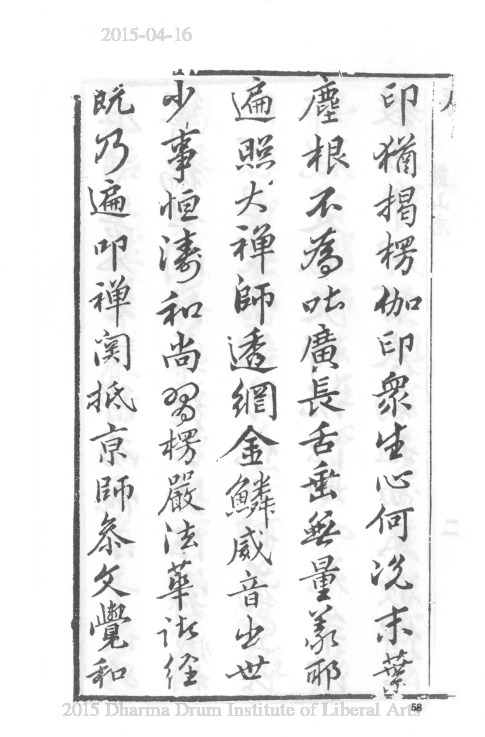 2015-04-16
印猶揭楞伽印衆生心何况末葉
塵根不為吐廣長舌垂無量義耶
遍照大禅師透網金鱗威音出世
少事恒濤和尚習楞嚴法華諸経
既乃遍叩禅関抵京師叅文覺和
58
2015 Dharma Drum Institute of Liberal Arts